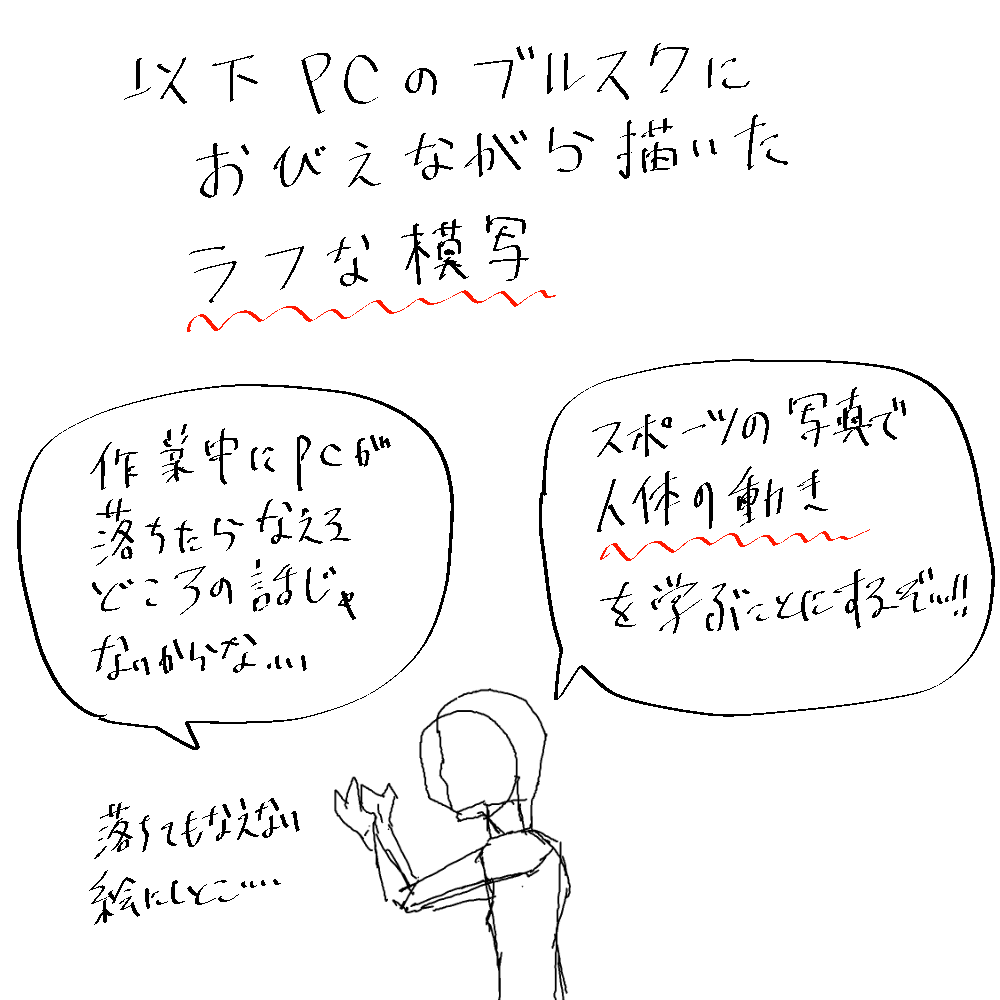 以下PCのブルスクに
おびえながら描いた
ラフな模写
スポーツの写真で
人体の動き
を学ぶことにするぞぃ!!
作業中にPCが
落ちたらなえる
どころの話じゃ
ないからな…
落ちてもなえない
絵にしとこ…